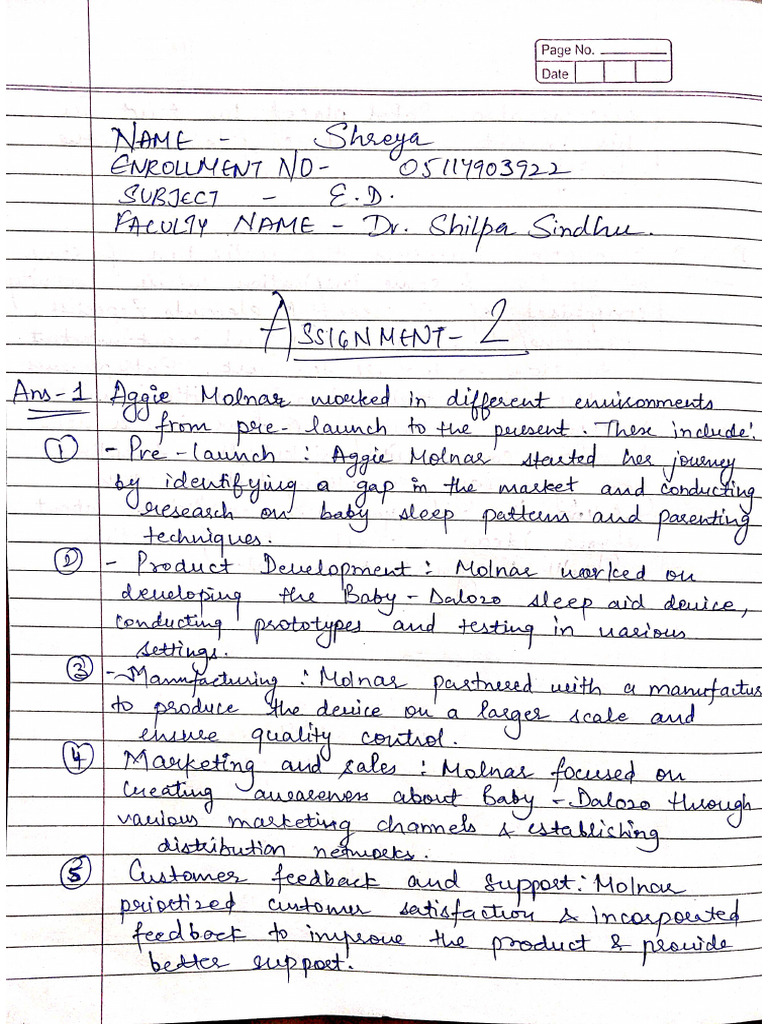 Page No.
Date
NAME - Shreya
ENROLLMENT NO- 05117903922
SUBJECT - E.D.
FACULTY NAME - Dr. Shilpa Sindhu.
ASSIGNMENT- 2
Ans-1 Aggie Molnar worked in different environments
from pre-launch to the present. These include:
① - Pre-launch : Aggie Molnar started her journey
by identifying a gap in the market and conducting
research on baby sleep patterns and parenting
techniques.
② - Product Development : Molnar worked on
developing the Baby-Dalozo sleep aid device,
conducting prototypes and testing in various
settings.
③ - Manufacturing : Molnar partnered with a manufactur
to produce the device on a larger scale and
ensure quality control.
④ Marketing and sales : Molnar focused on
creating awareness about Baby-Dalozo through
various marketing channels & establishing
distribution networks.
⑤ Customer feedback and support: Molnar
priortized customer satisfaction & incorporated
feedback to improve the product & provide
better support.